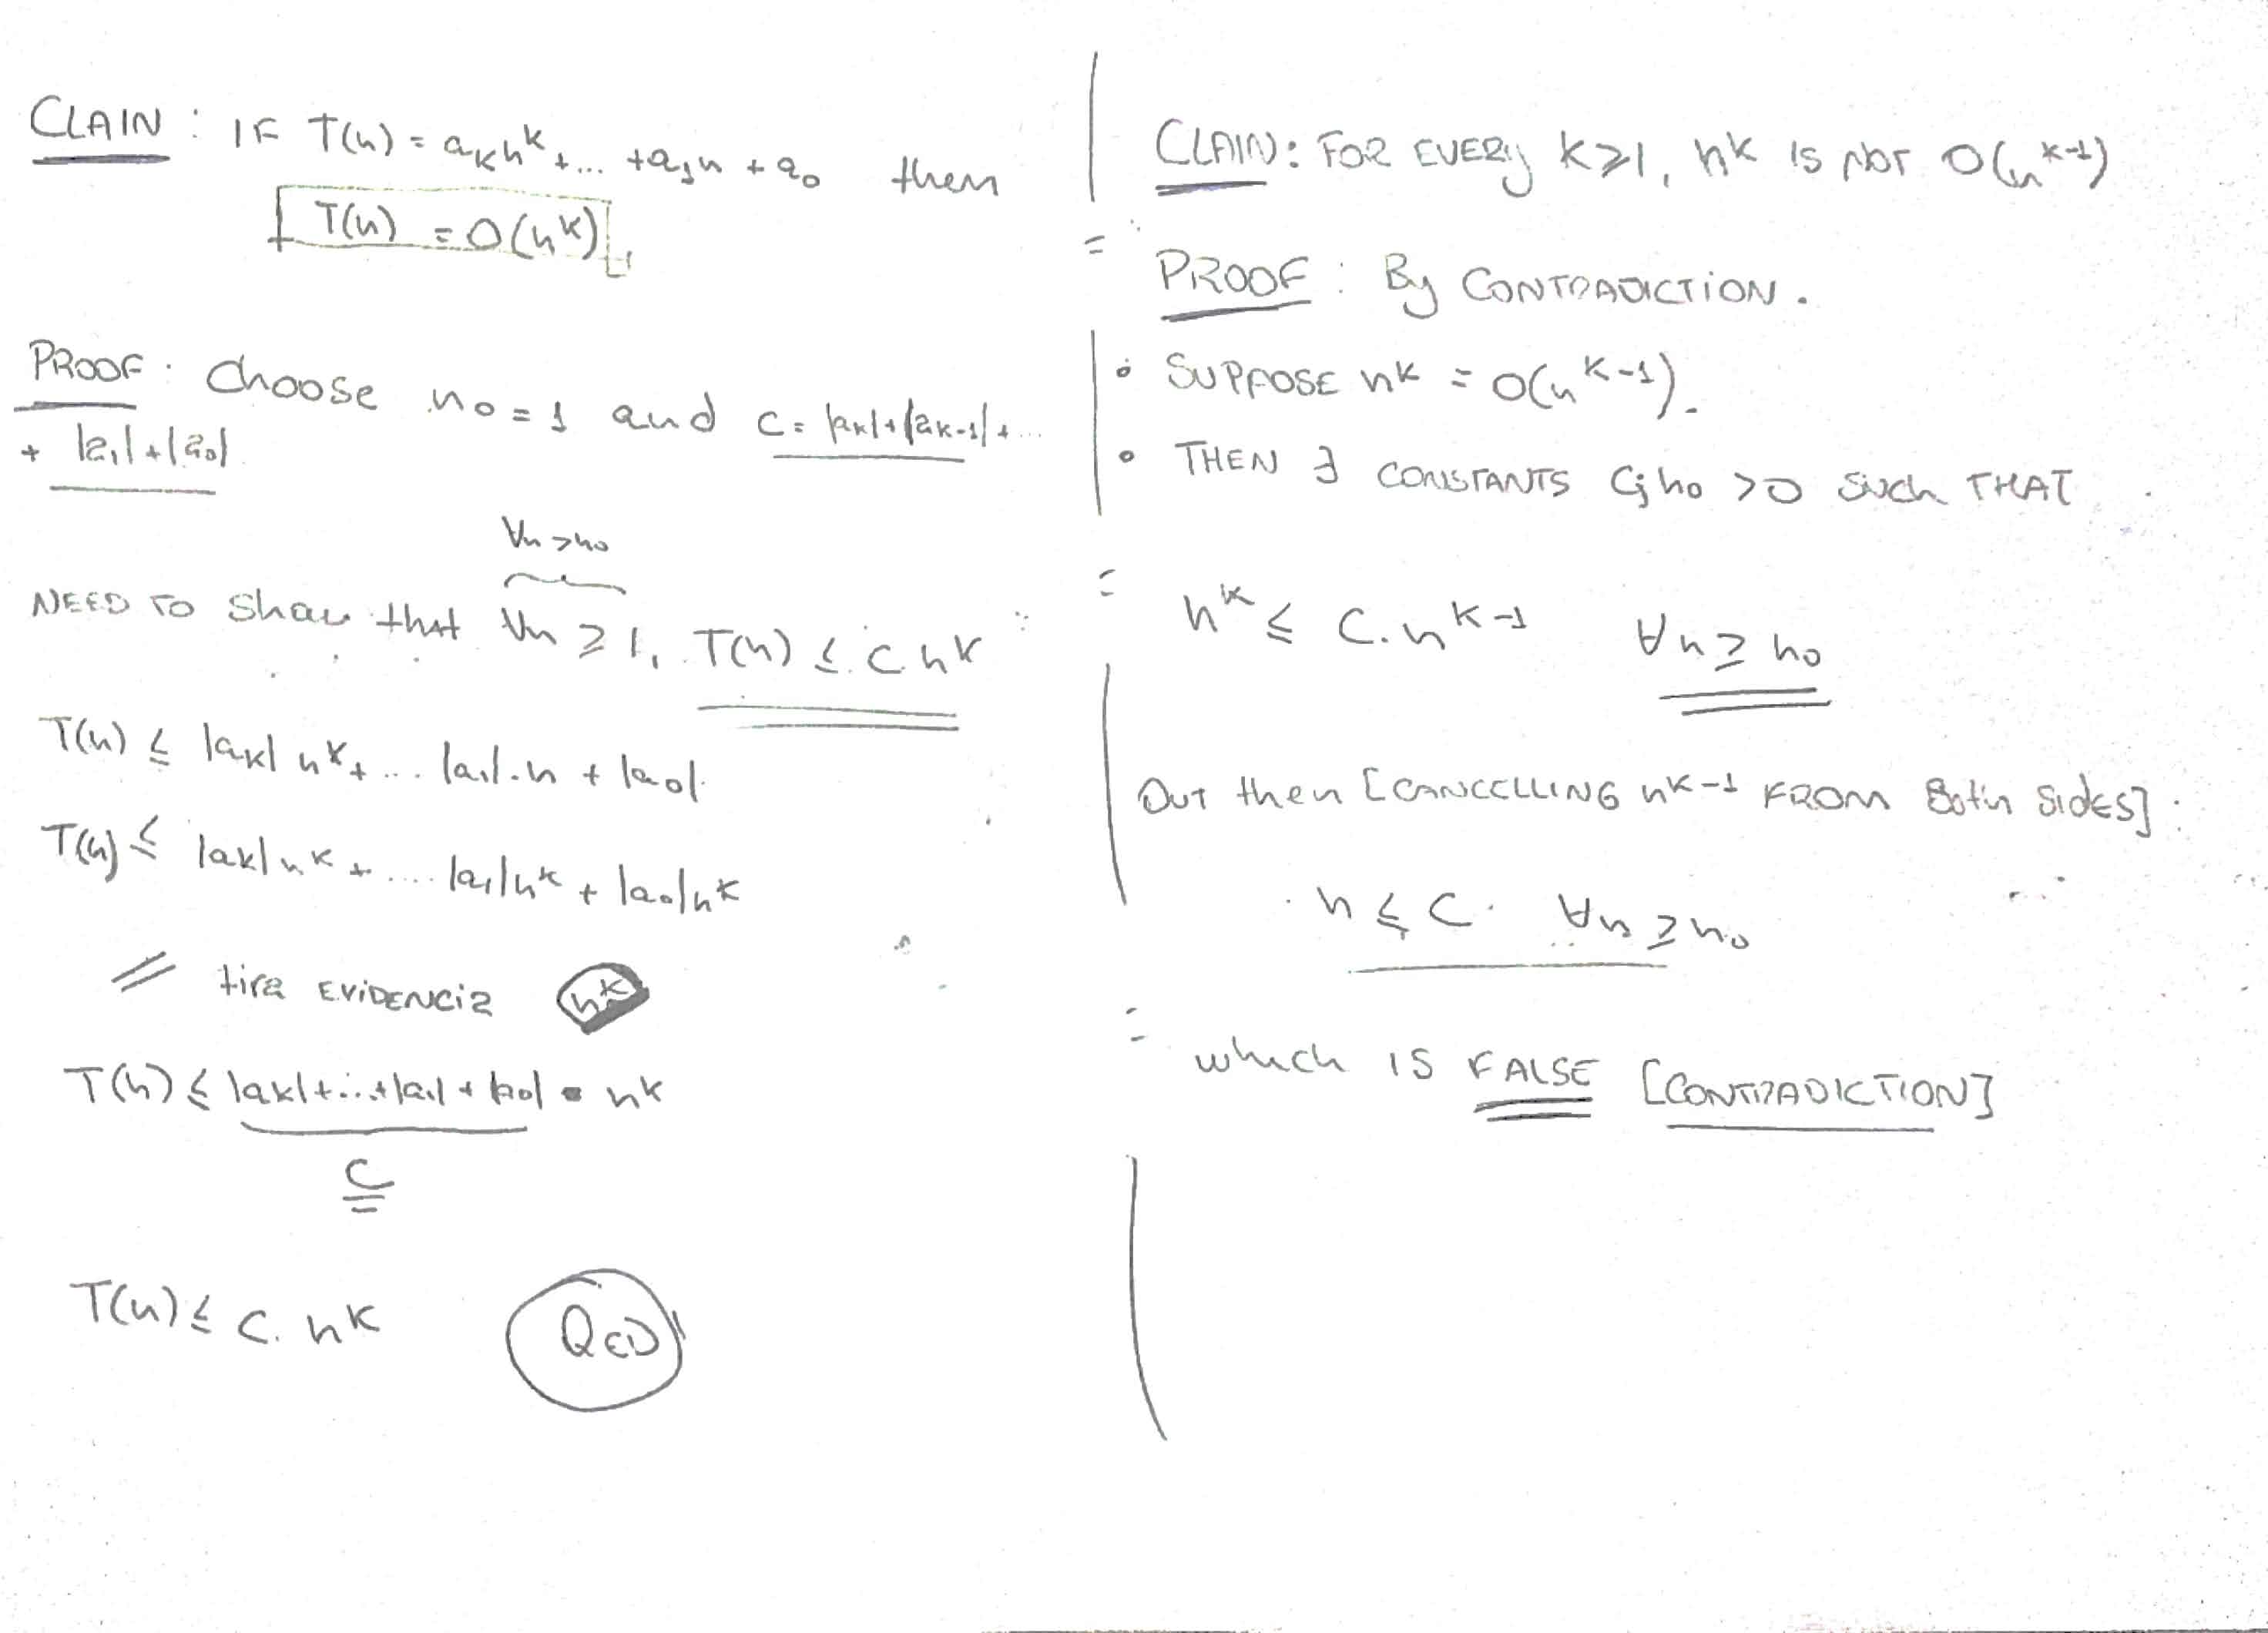 CLAIN : IF T(n) = aₖnᵏ + ... + a₁n + a₀ then
T(n) = O(nᵏ)
PROOF : Choose n₀ = 1 and c = |aₖ| + |aₖ₋₁| + ...
+ |a₁| + |a₀|
∀n > n₀
NEED TO show that ∀n ≥ 1, T(n) ≤ c nᵏ
T(n) ≤ |aₖ| nᵏ + ... |a₁|.n + |a₀|
T(n) ≤ |aₖ| nᵏ + .... |a₁| nᵏ + |a₀| nᵏ
// tira EViDENCia nᵏ
T(n) ≤ |aₖ| + ... + |a₁| + |a₀| • nᵏ
C
T(n) ≤ C. nᵏ QED
CLAIN : FOR EVERy K ≥ 1, nᵏ IS NOT O(nᵏ⁻¹)
PROOF : By CONTRADICTiON.
• SUPPOSE nᵏ = O(nᵏ⁻¹).
• THEN ∃ CONSTANTS C; n₀ > 0 SUch THAT
nᵏ ≤ C. nᵏ⁻¹ ∀n ≥ n₀
then [CANCELLING nᵏ⁻¹ FROM Both SidES] :
n ≤ C. ∀n ≥ n₀
= which IS FALSE [CONTRADICTION]